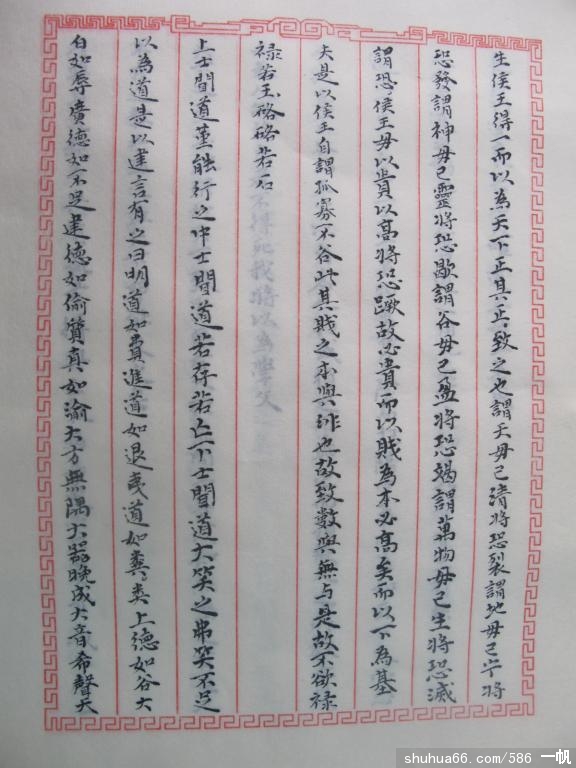 生侯王得一而以為天下正其正致之也謂天毋已清將恐裂謂地毋已寧將
恐發謂神毋已靈將恐歇謂谷毋已盈將恐竭謂萬物毋已生將恐滅
謂恐侯王毋以貴以高將恐蹶故必貴而以賤為本必高矣而以下為基
夫是以侯王自謂孤寡不谷此其賤之本與非也故致數與無与是故不欲祿
祿若玉硌硌若石
上士聞道堇能行之中士聞道若存若亡下士聞道大笑之弗笑不足
以為道是以建言有之曰明道如費進道如退夷道如類上德如谷大
白如辱廣德如不足建德如偷質真如渝大方無隅大器晚成大音希聲天
shuhua66.com/586 一帆